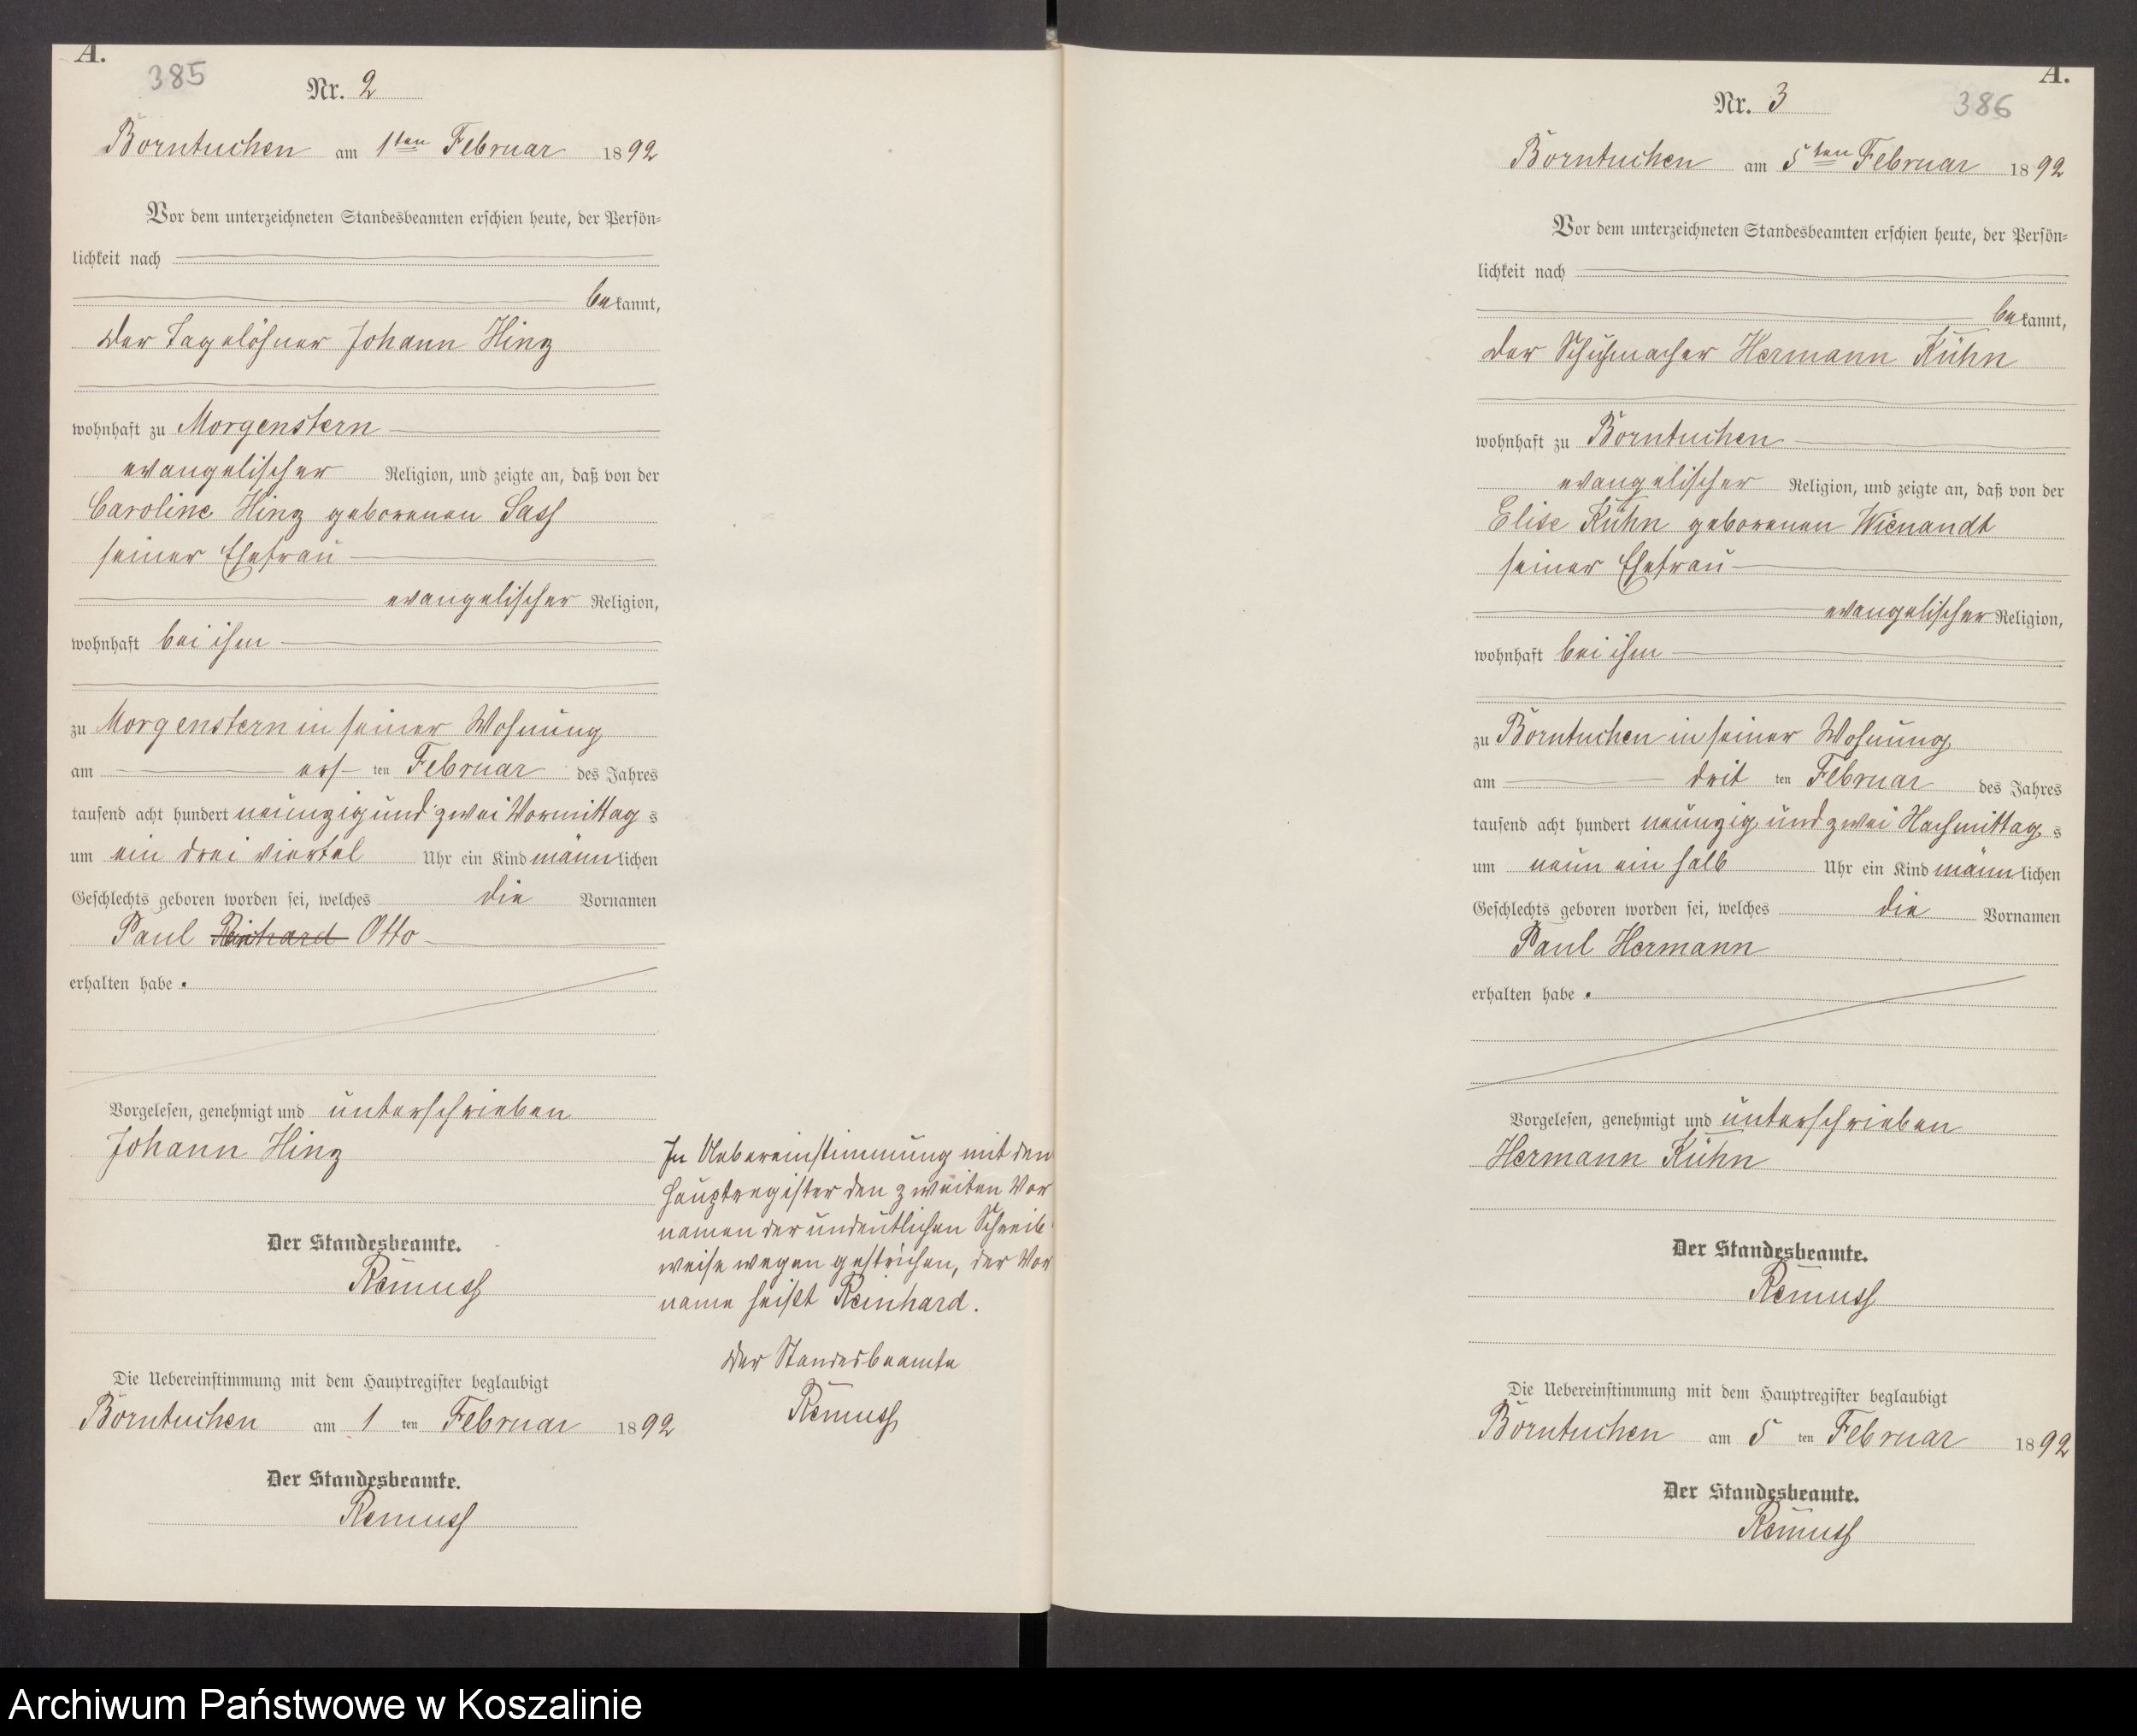 A.
385
Nr. 2
Borntuchen am 1ten Februar 1892
Vor dem unterzeichneten Standesbeamten erschien heute, der Persön=
lichkeit nach
bekannt,
der Tagelöhner Johann Hinz
wohnhaft zu Morgenstern
evangelischer Religion, und zeigte an, daß von der
Caroline Hinz geborenen Sass
seiner Ehefrau
evangelischer Religion,
wohnhaft bei ihm
zu Morgenstern in seiner Wohnung
am ers ten Februar des Jahres
tausend acht hundert neunzig und zwei Vormittag s
um ein drei viertel Uhr ein Kind männlichen
Geschlechts geboren worden sei, welches die Vornamen
Paul Reinhard Otto
erhalten habe.
Vorgelesen, genehmigt und unterschrieben
Johann Hinz
Der Standesbeamte.
Remuss
Die Uebereinstimmung mit dem Hauptregister beglaubigt
Borntuchen am 1 ten Februar 1892
Der Standesbeamte.
Remuss
In Uebereinstimmung mit den
Hauptregister den zweiten Vor
namen der undeutlichen Schreib
weise wegen gestrichen, der Vor
name heißt Reinhard.
Der Standesbeamte
Remuss
A.
386
Nr. 3
Borntuchen am 5ten Februar 1892
Vor dem unterzeichneten Standesbeamten erschien heute, der Persön=
lichkeit nach
bekannt,
der Schuhmacher Hermann Kühn
wohnhaft zu Borntuchen
evangelischer Religion, und zeigte an, daß von der
Elise Kühn geborenen Wienandt
seiner Ehefrau
evangelischer Religion,
wohnhaft bei ihm
zu Borntuchen in seiner Wohnung
am drit ten Februar des Jahres
tausend acht hundert neunzig und zwei Nachmittag s
um neun ein halb Uhr ein Kind männlichen
Geschlechts geboren worden sei, welches die Vornamen
Paul Hermann
erhalten habe.
Vorgelesen, genehmigt und unterschrieben
Hermann Kühn
Der Standesbeamte.
Remuss
Die Uebereinstimmung mit dem Hauptregister beglaubigt
Borntuchen am 5 ten Februar 1892
Der Standesbeamte.
Remuss
Archiwum Państwowe w Koszalinie